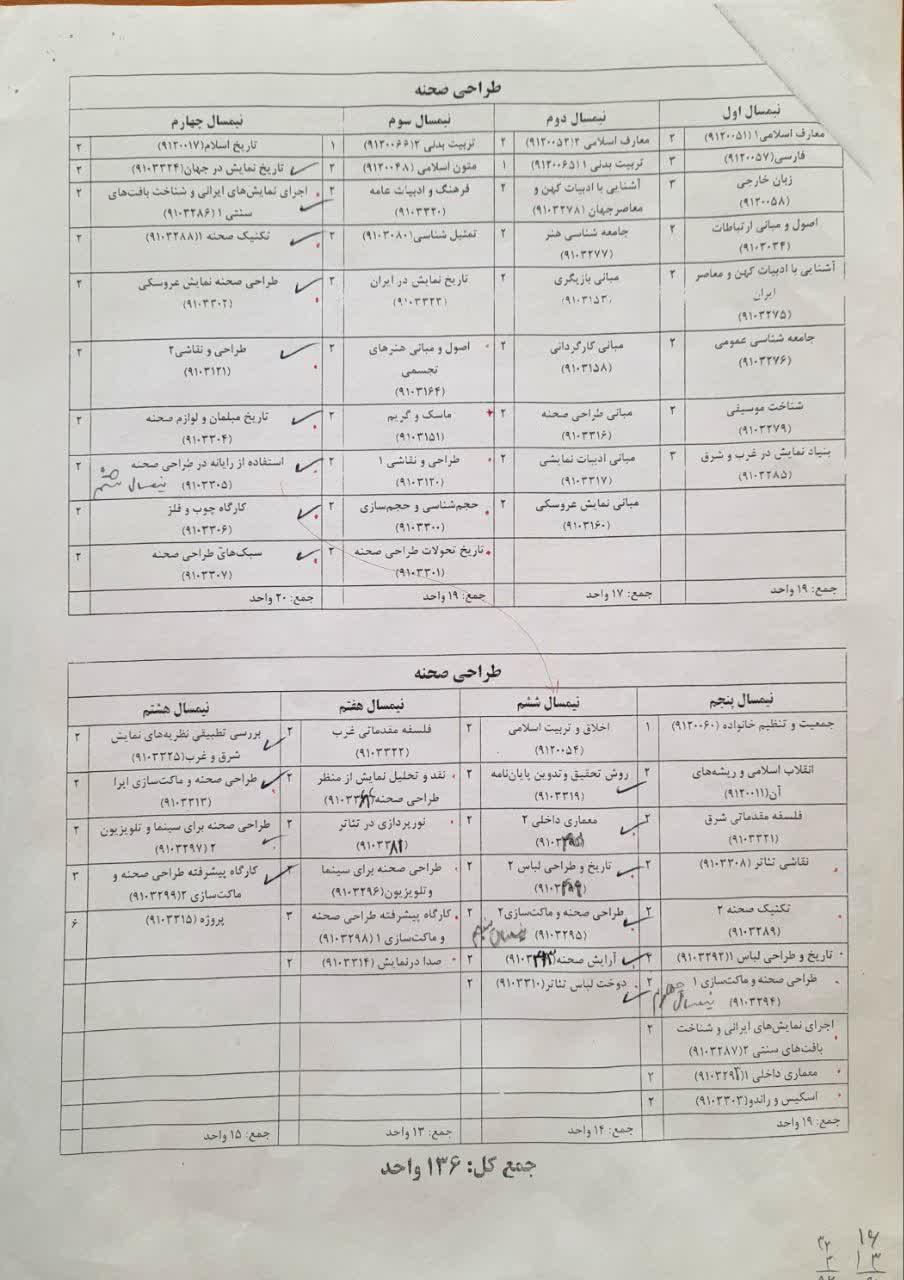 طراحی صحنه
نیمسال اول
معارف اسلامی۱ (۹۱۲۰۰۵۱) ۲
فارسی(۹۱۲۰۰۵۷) ۳
زبان خارجی ۳
(۹۱۲۰۰۵۸)
اصول و مبانی ارتباطات ۲
(۹۱۰۳۰۳۴)
آشنایی با ادبیات کهن و معاصر ۲
ایران
(۹۱۰۳۲۷۵)
جامعه شناسی عمومی ۲
(۹۱۰۳۲۷۶)
شناخت موسیقی ۲
(۹۱۰۳۲۷۹)
بنیاد نمایش در غرب و شرق ۳
(۹۱۰۳۲۸۵)
جمع: ۱۹ واحد
نیمسال دوم
معارف اسلامی ۲(۹۱۲۰۰۵۳) ۲
تربیت بدنی ۱ (۹۱۲۰۰۶۵) ۱
آشنایی با ادبیات کهن و ۲
معاصرجهان (۹۱۰۳۲۷۸)
جامعه شناسی هنر ۲
(۹۱۰۳۲۷۷)
مبانی بازیگری ۲
(۹۱۰۳۱۵۳)
مبانی کارگردانی ۲
(۹۱۰۳۱۵۸)
مبانی طراحی صحنه ۲
(۹۱۰۳۳۱۶)
مبانی ادبیات نمایشی ۲
(۹۱۰۳۳۱۷)
مبانی نمایش عروسکی ۲
(۹۱۰۳۱۶۰)
جمع: ۱۷ واحد
نیمسال سوم
تربیت بدنی ۲(۹۱۲۰۰۶۶) ۱
متون اسلامی (۹۱۲۰۰۴۸) ۲
فرهنگ و ادبیات عامه ۲
(۹۱۰۳۳۲۰)
تمثیل شناسی(۹۱۰۳۰۸۰) ۲
تاریخ نمایش در ایران ۲
(۹۱۰۳۳۲۳)
اصول و مبانی هنرهای ۲
تجسمی
(۹۱۰۳۱۶۴)
ماسک و گریم ۲
(۹۱۰۳۱۵۱)
طراحی و نقاشی ۱ ۲
(۹۱۰۳۱۲۰)
حجم‌شناسی و حجم‌سازی ۲
(۹۱۰۳۳۰۰)
تاریخ تحولات طراحی صحنه ۲
(۹۱۰۳۳۰۱)
جمع: ۱۹ واحد
نیمسال چهارم
تاریخ اسلام(۹۱۲۰۰۱۷) ۲
تاریخ نمایش در جهان(۹۱۰۳۳۲۴) ۲
اجرای نمایش‌های ایرانی و شناخت بافت‌های ۲
سنتی ۱ (۹۱۰۳۲۸۶)
تکنیک صحنه ۱(۹۱۰۳۲۸۸) ۲
طراحی صحنه نمایش عروسکی ۲
(۹۱۰۳۳۰۲)
طراحی و نقاشی۲ ۲
(۹۱۰۳۱۲۱)
تاریخ مبلمان و لوازم صحنه ۲
(۹۱۰۳۳۰۴)
استفاده از رایانه در طراحی صحنه ۲
(۹۱۰۳۳۰۵) نیمسال ششم
کارگاه چوب و فلز ۲
(۹۱۰۳۳۰۶)
سبک‌های طراحی صحنه ۲
(۹۱۰۳۳۰۷)
جمع: ۲۰ واحد
طراحی صحنه
نیمسال پنجم
جمعیت و تنظیم خانواده (۹۱۲۰۰۶۰) ۱
انقلاب اسلامی و ریشه‌های ۲
آن(۹۱۲۰۰۱۱)
فلسفه مقدماتی شرق ۲
(۹۱۰۳۳۲۱)
نقاشی تئاتر (۹۱۰۳۳۰۸) ۲
تکنیک صحنه ۲ ۲
(۹۱۰۳۲۸۹)
تاریخ و طراحی لباس ۱(۹۱۰۳۲۹۲) ۲
طراحی صحنه و ماکت‌سازی ۱ ۲
(۹۱۰۳۲۹۴) نیمسال چهارم
اجرای نمایش‌های ایرانی و شناخت ۲
بافت‌های سنتی ۲(۹۱۰۳۲۸۷)
معماری داخلی ۱ ۲
اسکیس و راندو(۹۱۰۳۳۰۳) ۲
جمع: ۱۹ واحد
نیمسال ششم
اخلاق و تربیت اسلامی ۲
(۹۱۲۰۰۵۴)
روش تحقیق وتدوین پایان‌نامه ۲
(۹۱۰۳۳۱۹)
معماری داخلی ۲ ۲
تاریخ و طراحی لباس ۲ ۲
طراحی صحنه و ماکت‌سازی۲ ۲
(۹۱۰۳۲۹۵)
آرایش صحنه ۲
دوخت لباس تئاتر(۹۱۰۳۳۱۰) ۲
جمع: ۱۴ واحد
نیمسال هفتم
فلسفه مقدماتی غرب ۲
(۹۱۰۳۳۲۲)
نقد و تحلیل نمایش از منظر ۲
طراحی صحنه
نورپردازی در تئاتر ۲
طراحی صحنه برای سینما ۲
وتلویزیون(۹۱۰۳۲۹۶)
کارگاه پیشرفته طراحی صحنه ۳
و ماکت‌سازی ۱ (۹۱۰۳۲۹۸)
صدا درنمایش (۹۱۰۳۳۱۴) ۲
جمع: ۱۳ واحد
نیمسال هشتم
بررسی تطبیقی نظریه‌های نمایش ۲
شرق و غرب(۹۱۰۳۳۲۵)
طراحی صحنه و ماکت‌سازی ایرا ۲
(۹۱۰۳۳۱۳)
طراحی صحنه برای سینما و تلویزیون ۲
۲ (۹۱۰۳۲۹۷)
کارگاه پیشرفته طراحی صحنه و ۳
ماکت‌سازی ۲(۹۱۰۳۲۹۹)
پروژه (۹۱۰۳۳۱۵) ۶
جمع: ۱۵ واحد
جمع کل: ۱۳۶ واحد
۱۶
۱۳